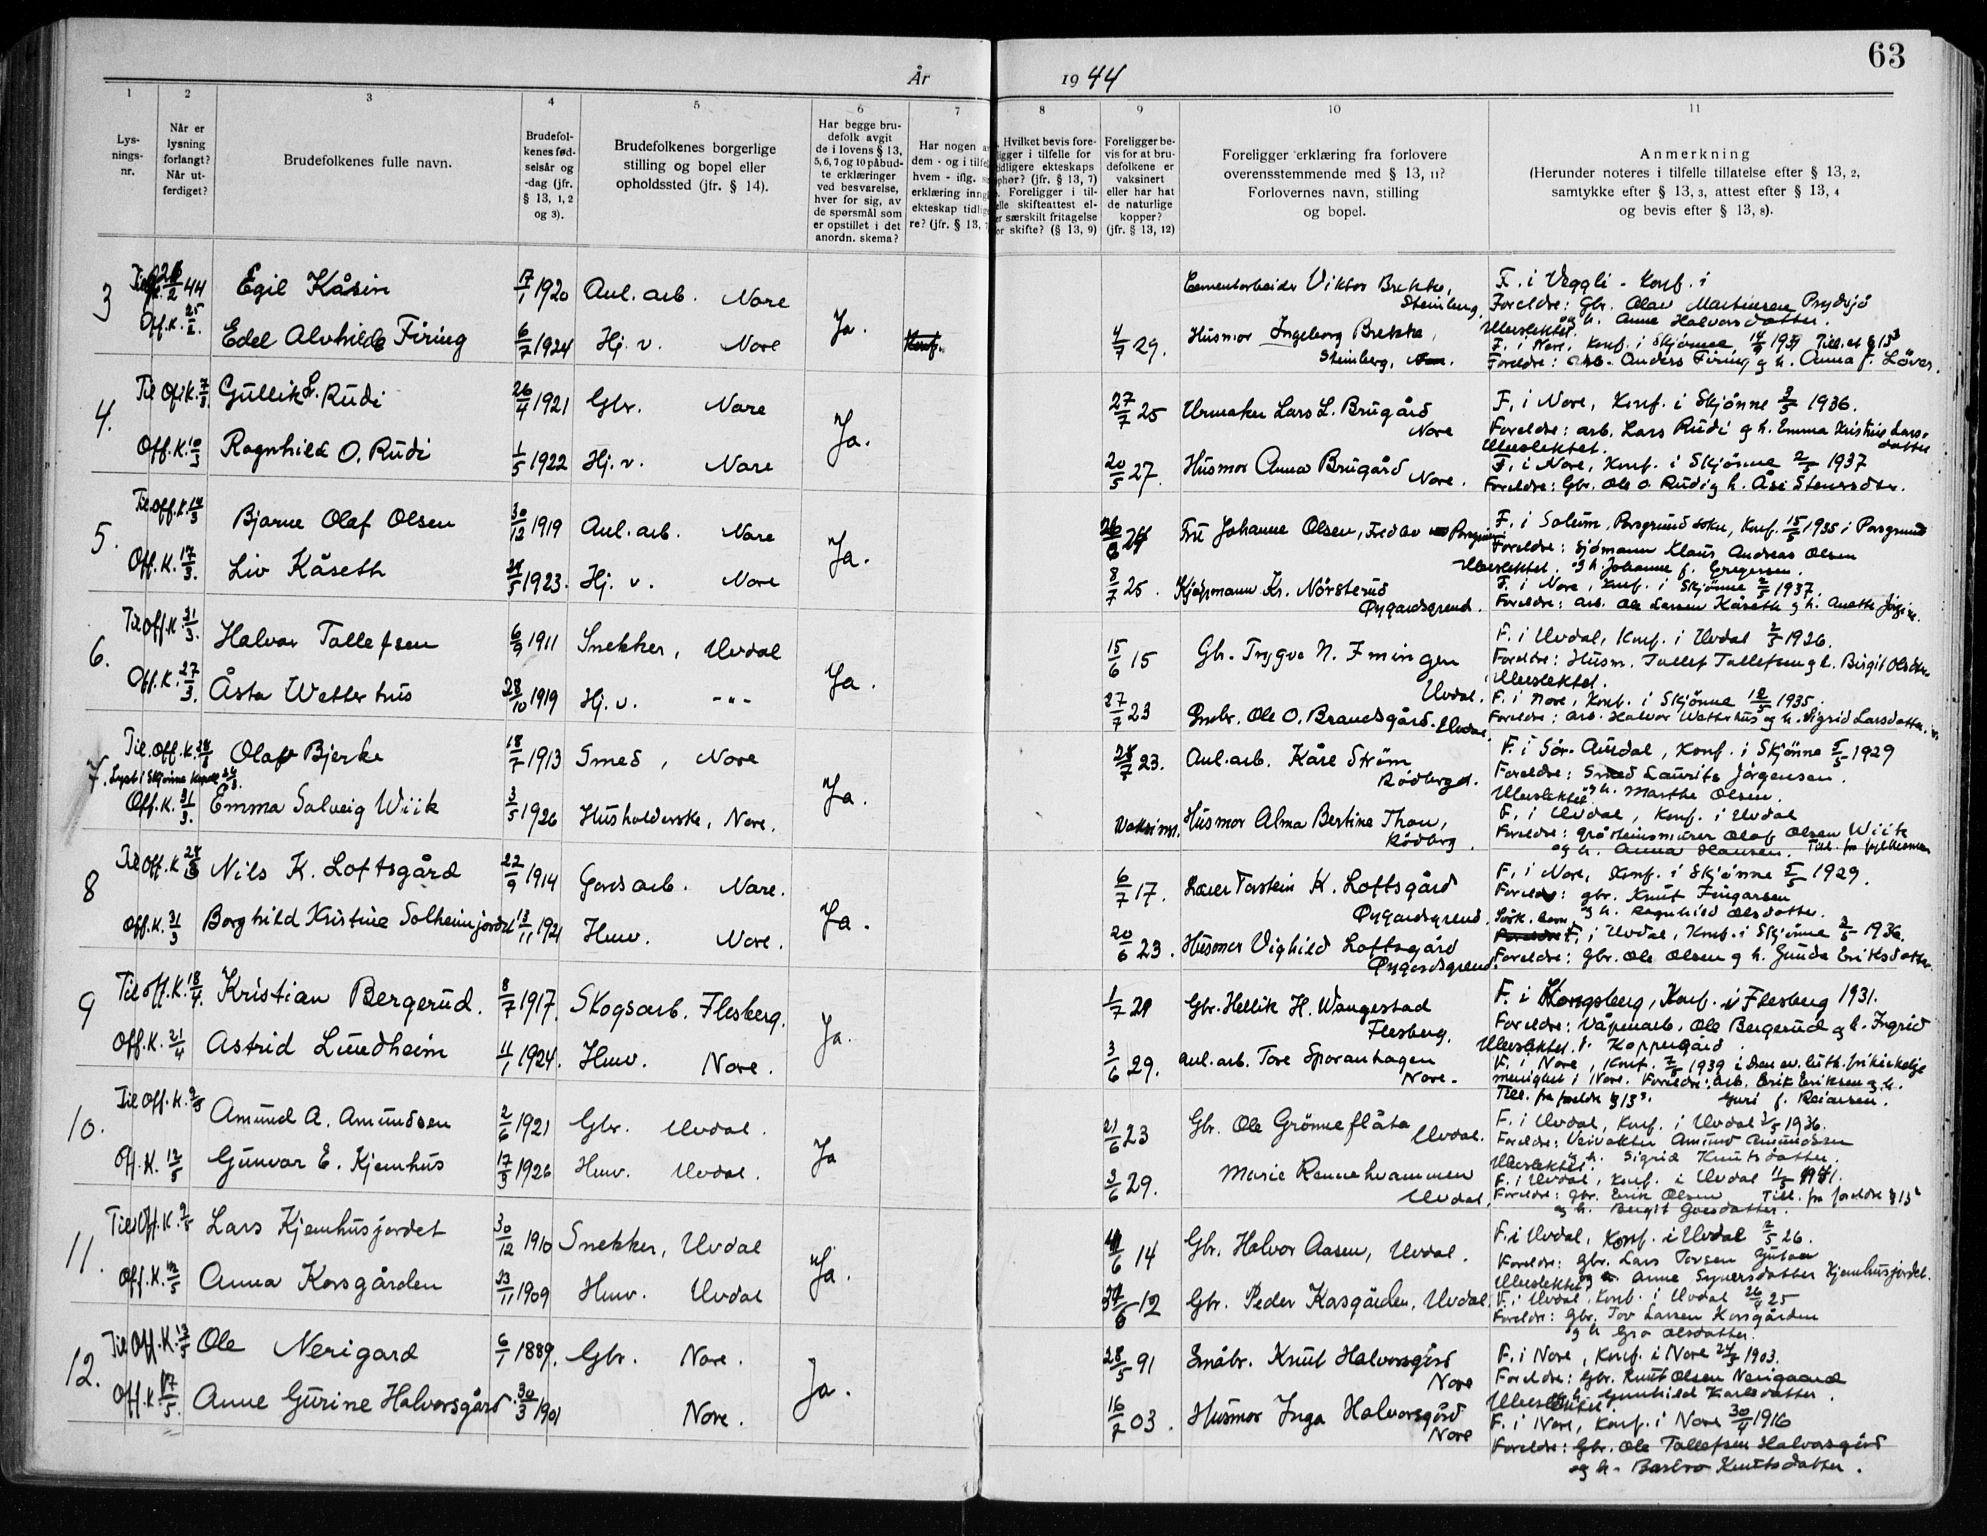 63
År 1944
1 2 3 4 5 6 7 8 9 10 11
Lys-
nings-
nr.
Når er
lysning
forlangt?
Når ut-
ferdiget?
Brudefolkenes fulle navn.
Brudefol-
kenes fød-
selsår og
-dag (jfr.
§ 13, 1, 2
og 3).
Brudefolkenes borgerlige
stilling og bopel eller
opholdssted (jfr. § 14).
Har begge bru-
defolk avgit
de i lovens § 13,
5, 6, 7 og 10 påbud-
te erklæringer
ved besvarelse,
hver for sig, av
de spørsmål som
er opstillet i det
anordn. skema?
Har nogen a
dem - og i tilfe
hvem - iflg.
erklæring inng
ekteskap tidlig
re? (jfr. § 13,
Hvilket bevis fore-
ligger i tilfelle for
tidligere ekteskaps
ophør? (jfr. § 13, 7)
Foreligger i til-
felle skifteattest el-
er særskilt fritagelse
or skifte? (§ 13, 9)
Foreligger be-
vis for at bru-
defolkene er
vaksinert
eller har hat
de naturlige
kopper?
(jfr. § 13, 12)
Foreligger erklæring fra forlovere
overensstemmende med § 13, 11?
Forlovernes navn, stilling
og bopel.
Anmerkning
(Herunder noteres i tilfelle tillatelse efter § 13, 2,
samtykke efter § 13, 3, attest efter § 13, 4
og bevis efter § 13, 8).
3 44 Egil Kåsin 17/1 1920 Anl. arb. Nore Ja. Cementarbeider Viktor Brekke, Steinberg.
F. i Veggli - Konf. i
Foreldre: Gbr. Olav Martinsen Prydsjø
og h. Anne Halvorsdatter.
Ubeslektet.
Off. K. 25/2. Edel Alvhilde Firing 6/7 1924 Hj. v. Nore 4/7 29. Husmor Ingeborg Brekke, Steinberg,
F. i Nore, Konf. i Skjønne Till. et § 13 3
Foreldre: Arb. Anders Firing og h. Anna f. Løver.
4. Til Off. K. 7/3 Gullik L. Rudi 26/4 1921 Gbr. Nore Ja. 27/7 25 Urmaker Lars L. Brugård Nore
F. i Nore, Konf. i Skjønne 3/5 1936.
Foreldre: arb. Lars Rudi og h. Emma Kristine Lars-
datter
Ubeslektet.
Off. K. 10/3 Ragnhild O. Rudi 1/5 1922 Hj. v. Nore 20/5 27. Husmor Anna Brugård Nore.
F. i Nore, Konf. i Skjønne 2/5 1937
Foreldre: Gbr. Ole O. Rudi og h. Åse Stensdtr.
5. Til Off. K. 14/3 Bjarne Olaf Olsen 30/12 1919 Anl. arb. Nore Ja. Fru Johanne Olsen,
F. i Solum, Porsgrund sokn, Konf. 15/5 1935 i Porsgrund
Foreldre: Sjømann Klaus Andreas Olsen
Ubeslektet. og h. Johanne f. Gregersen.
Off. K. 17/3. Liv Kåseth 1923. Hj. v. Nore 8/7 25. Kjøpmann Kr. Nørsterud Øygardsgrend.
F. i Nore, Konf. i Skjønne 2/5 1937.
Foreldre: Arb. Ole Larsen Kåseth og h. Anette
6. Til Off. K. 21/3. Halvor Tollefsen 6/9 1911 Snekker, Uvdal Ja. 15/6 15 Gbr. Trygve N. Imingen Uvdal.
F. i Uvdal, Konf. i Uvdal 2/5 1926.
Foreldre: Husm. Tollef Tollefsen og h. Birgit Olsdtr.
Ubeslektet.
Off. K. 27/3. Åsta Wetterhus 28/10 1919 Hj. v. -"- 27/7 23 Småbr. Ole O. Brandsgård. Uvdal.
F. i Nore, Konf. i Skjønne 12/5 1935.
Foreldre: Arb. Halvor Wetterhus og h. Sigrid Larsdatter.
7. Til Off. K. Olaf Bjerke 18/7 1913 Smed, Nore Ja. 28/7 23. Anl. arb. Kåre Strøm Rødberg.
Lyst i Skjønne Kapell
F. i Sør-Aurdal, Konf. i Skjønne 5/5 1929
Foreldre: Smed Laurits Jørgensen.
og h. Marthe Olsen.
Ubeslektet
Off. K. 31/3. Emma Solveig Wiik 3/5 1926 Husholderske, Nore. Vaksines. Husmor Alma Bertine Thon, Rødberg.
F. i Uvdal, Konf. i Uvdal
Foreldre: Gråsteinsmurer Olaf Olsen Wiik
og h. Anna Hansen. Till. fra fylkesmann
8 Til Off. K. Nils K. Loftsgård 22/9 1914 Gards arb. Nore. Ja. 6/7 17. Lærer Torstein K. Loftsgård Øygardsgrend.
F. i Nore, Konf. i Skjønne 5/5 1929.
Foreldre: gbr. Knut Fingarsen
og h. Ragnhild Olsdatter.
Off. K. 31/3 Borghild Kristine Solheimjordet 13/11 1921 Husv. Nore. 20/6 23. Husmor Vighild Loftsgård Øygardsgrend.
Søsk. barn
F. i Uvdal, Konf. i Skjønne 3/5 1936.
Foreldre: Gbr. Ole Olsen og h. Gunda Eriksdatter.
9 Til Off. K. 18/4. Kristian Bergerud. 8/7 1917. Skogsarb. Flesberg. Ja. 1/7 21 Gbr. Hellik H. Wangestad Flesberg.
F. i Kongsberg, Konf. i Flesberg 1931.
Foreldre: Våpenarb. Ole Bergerud og h. Ingrid
Ubeslektet. f. Koppergård.
Off. K. 21/4 Astrid Lundheim 11/1 1924. Husv. Nore. 3/6 29. Anl. arb. Tore Sporanhagen Nore.
F. i Nore, Konf. 7/5 1939 i Den ev. luth. frikirkelige
menighet i Nore. Foreldre: Arb. Erik Eriksen og h.
Till. fra foreldre § 13 3. Guri f. Reiarsen.
10. Til Off. K. 9/5 Amund A. Amundsen 2/6 1921 Gbr. Uvdal. Ja 21/6 23 Gbr. Ole Grønneflåta Uvdal.
F. i Uvdal, Konf. i Uvdal 3/5 1936.
Foreldre: Veivakter Amund Amundsen
og h. Sigrid Knutsdatter.
Ubeslektet.
Off. K. 12/5 Gunvor E. Kjemhus 17/3 1926 Husv. Uvdal. 3/6 29. Marie Rennehvammen Uvdal.
F. i Uvdal, Konf. i Uvdal 11/5 1941.
Foreldre: gbr. Erik Olsen Till. fra foreldre § 13
og h. Bergit Goesdatter.
11. Til Off. K. 9/5 Lars Kjemhusjordet 30/12 1910 Snekker, Uvdal Ja. 14 Gbr. Halvor Aasen, Uvdal.
F. i Uvdal, Konf. i Uvdal 2/5 26.
Foreldre: gbr. Lars Torsen
og h. Anne Syversdatter Kjemhusjordet.
Ubeslektet
Off. K. 12/5 Anna Korsgården 23/11 1909 Husv. Uvdal 12 Gbr. Peder Korsgården, Uvdal.
F. i Uvdal, Konf. i Uvdal 26/4 25
Foreldre: Gbr. Tov Larsen Korsgården
og h. Gro Olsdatter.
12. Til Off. K. 13/5 Ole Nerigard 6/1 1889. Gbr. Nore. Ja. 28/5 91 Småbr. Knut Halvorsgård Nore
F. i Nore, Konf. i Nore 24/5 1903.
Foreldre: Gbr. Knut Olsen Nerigaard
og h. Gunhild Karlsdatter.
Ubeslektet.
Off. K. 17/5. Anne Gurine Halvorsgård. 30/3 1901 Nore. 16/7 03. Husmor Inga Halvorsgård Nore
F. i Nore, Konf. i Nore 30/4 1916
Foreldre: Gbr. Ole Tollefsen Halvorsgård
og h. Barbro Knutsdatter.